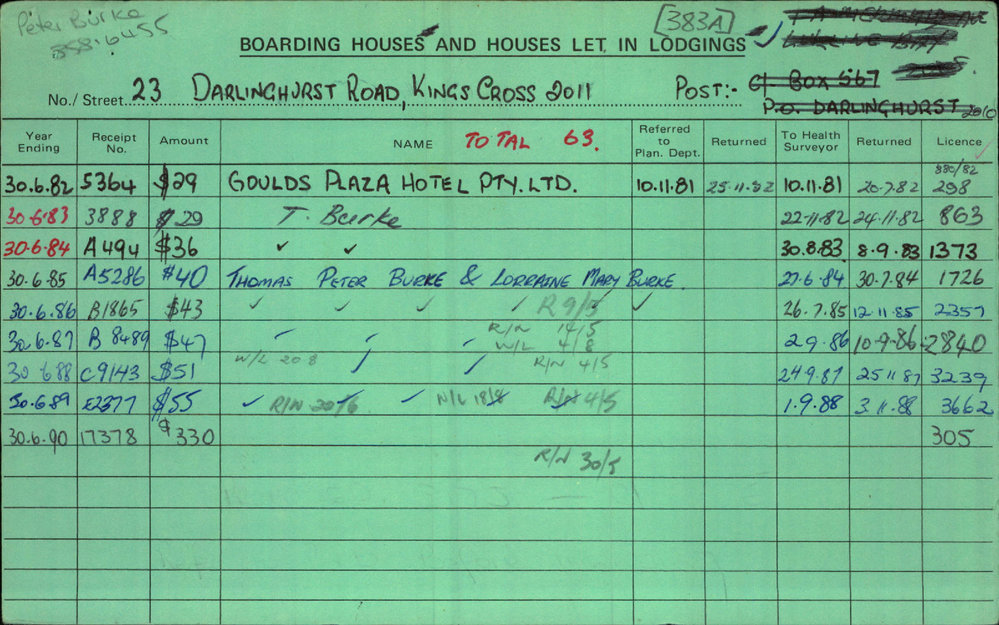 Peter Burke
358·6455
[383A]
BOARDING HOUSES AND HOUSES LET IN LODGINGS
C/- BOX 567
No./ Street 23 DARLINGHURST ROAD, KINGS CROSS 2011 POST:-
P.O. DARLINGHURST 2010
Year Ending Receipt No. Amount NAME TOTAL 63. Referred to Plan. Dept. Returned To Health Surveyor Returned Licence
30.6.82 5364 $29 GOULDS PLAZA HOTEL PTY. LTD. 10.11.81 25.11.82 10.11.81 20.7.82 330/82 298
30.6.83 3888 $29 T. Burke 22.11.82 24.11.82 863
30.6.84 A494 $36 ✓ ✓ 30.8.83 8-9.83 1373
30.6.85 A5286 $40 THOMAS PETER BURKE & LORRAINE MARY BURKE. 27.6.84 30.7.84 1726
30.6.86 B1865 $43 ✓ ✓ ✓ ✓ R 9/5 ✓ 26.7.85 12.11.85 2357
R/N 14/5
30.6.87 B 8489 $47 W/L 4/8 2.9.86 10.9.86 2840
W/L 20 8 R/N 4/5
30 6 88 C9143 $51 24 9.87 25 11 87 3239
30.6.89 E2377 $55 ✓ R/N 20/6 ✓ ✓ W/L 18/8 R/N 4/5 1.9.88 3.11.88 3662
30.6.90 17378 $330 305
R/N 30/5